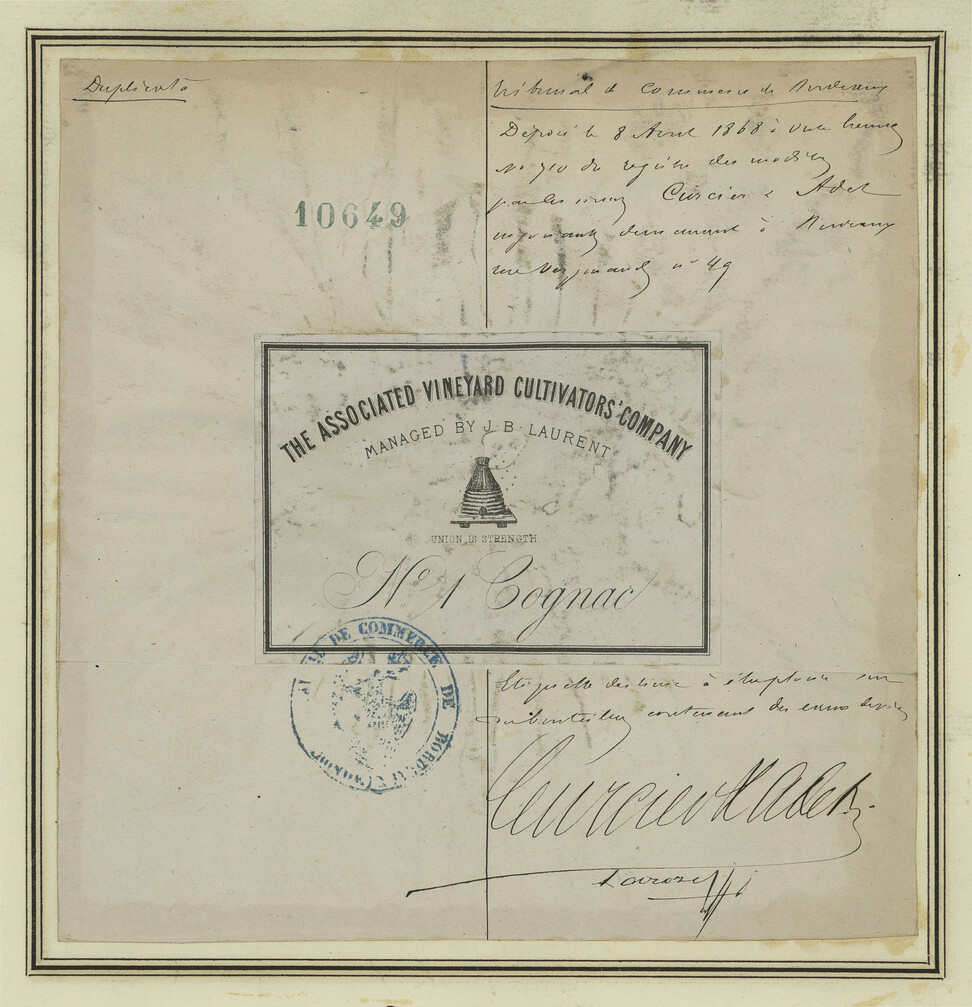 Duplicata
Tribunal de Commerce de Bordeaux
Déposé le 8 Avril 1868 à
No 710 du registre des modèles
par les sieurs Curcier & Adet
négociants demeurant à Bordeaux
rue n° 49
10649
THE ASSOCIATED VINEYARD CULTIVATORS' COMPANY
MANAGED BY J. B. LAURENT
UNION IS STRENGTH
No 1 Cognac
AL DE COMMERCE DE BORDEAUX (GIRONDE)
Etiquette destinée à être apposée sur
contenant des
Curcier & Adet